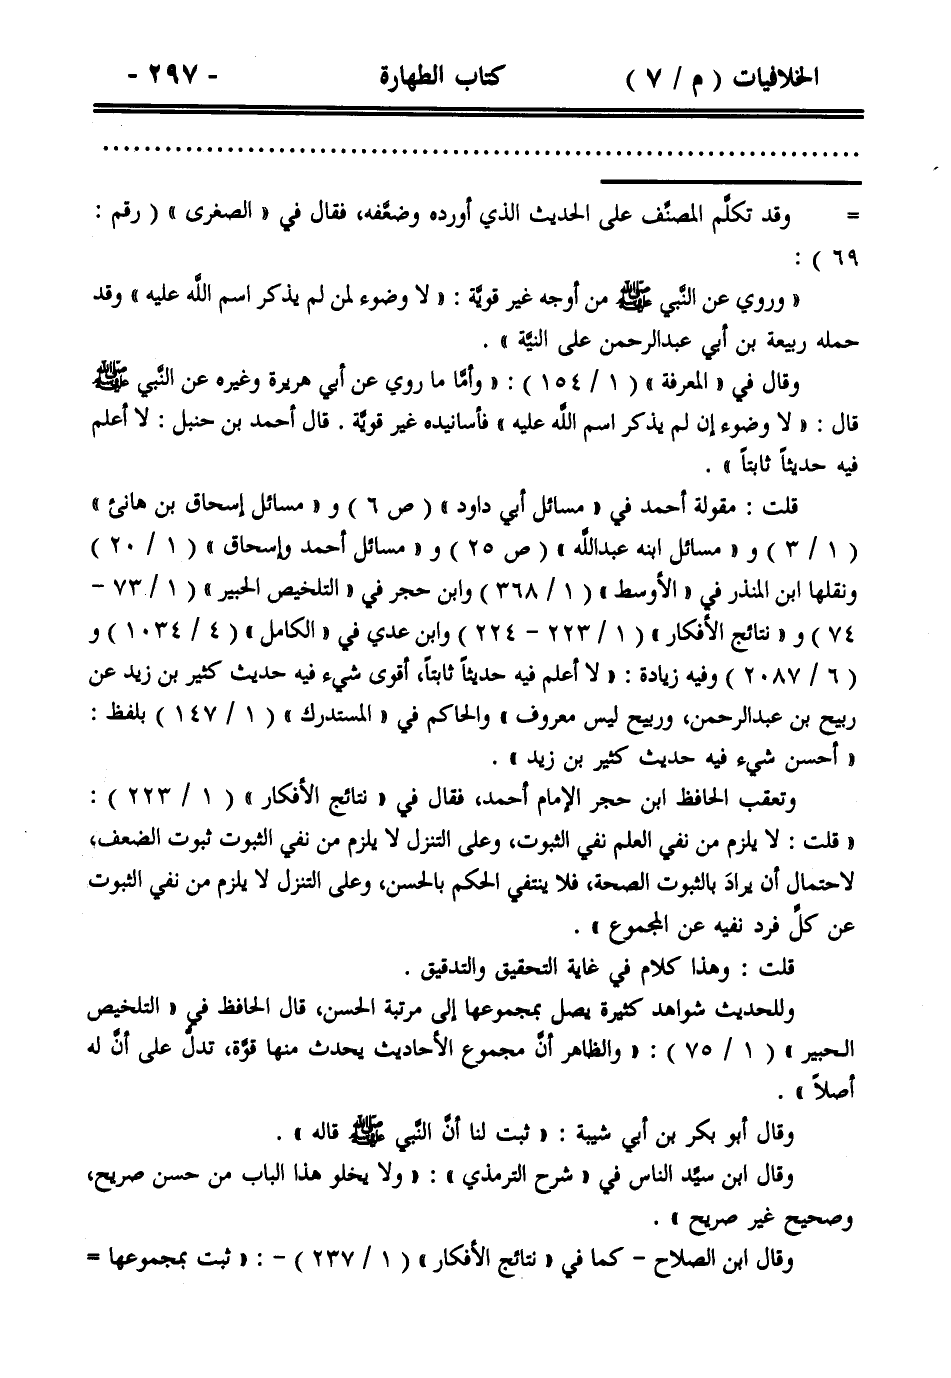 الخلافيات ( م / ٧ ) كتاب الطهارة - ٢٩٧ -
= وقد تكلَّم المصنِّف على الحديث الذي أورده وضعَّفه، فقال في « الصغرى » ( رقم :
٦٩ ) :
« وروي عن النَّبي ﷺ من أوجه غير قويَّة : « لا وضوء لمن لم يذكر اسم اللَّه عليه » وقد
حمله ربيعة بن أبي عبدالرحمن على النيَّة » .
وقال في « المعرفة » ( ١ / ١٥٤ ) : « وأمَّا ما روي عن أبي هريرة وغيره عن النَّبي ﷺ
قال : « لا وضوء إن لم يذكر اسم اللَّه عليه » فأسانيده غير قويَّة . قال أحمد بن حنبل : لا أعلم
فيه حديثاً ثابتاً » .
قلت : مقولة أحمد في « مسائل أبي داود » ( ص ٦ ) و « مسائل إسحاق بن هانئ »
( ١ / ٣ ) و « مسائل ابنه عبداللَّه » ( ص ٢٥ ) و « مسائل أحمد وإسحاق » ( ١ / ٢٠ )
ونقلها ابن المنذر في « الأوسط » ( ١ / ٣٦٨ ) وابن حجر في « التلخيص الحبير » ( ١ / ٧٣ -
٧٤ ) و « نتائج الأفكار » ( ١ / ٢٢٣ - ٢٢٤ ) وابن عدي في « الكامل » ( ٤ / ١٠٣٤ ) و
( ٦ / ٢٠٨٧ ) وفيه زيادة : « لا أعلم فيه حديثاً ثابتاً، أقوى شيء فيه حديث كثير بن زيد عن
ربيح بن عبدالرحمن، وربيح ليس معروف » والحاكم في « المستدرك » ( ١ / ١٤٧ ) بلفظ :
« أحسن شيء فيه حديث كثير بن زيد » .
وتعقب الحافظ ابن حجر الإمام أحمد، فقال في « نتائج الأفكار » ( ١ / ٢٢٣ ) :
« قلت : لا يلزم من نفي العلم نفي الثبوت، وعلى التنزل لا يلزم من نفي الثبوت ثبوت الضعف،
لاحتمال أن يرادَ بالثبوت الصحة، فلا ينتفي الحكم بالحسن، وعلى التنزل لا يلزم من نفي الثبوت
عن كلِّ فرد نفيه عن المجموع » .
قلت : وهذا كلام في غاية التحقيق والتدقيق .
وللحديث شواهد كثيرة يصل بمجموعها إلى مرتبة الحسن، قال الحافظ في « التلخيص
الحبير » ( ١ / ٧٥ ) : « والظاهر أنَّ مجموع الأحاديث يحدث منها قوَّة، تدلُّ على أنَّ له
أصلاً » .
وقال أبو بكر بن أبي شيبة : « ثبت لنا أنَّ النَّبي ﷺ قاله » .
وقال ابن سيِّد الناس في « شرح الترمذي » : « ولا يخلو هذا الباب من حسن صريح،
وصحيح غير صريح » .
وقال ابن الصلاح - كما في « نتائج الأفكار » ( ١ / ٢٣٧ ) - : « ثبت بمجموعها =